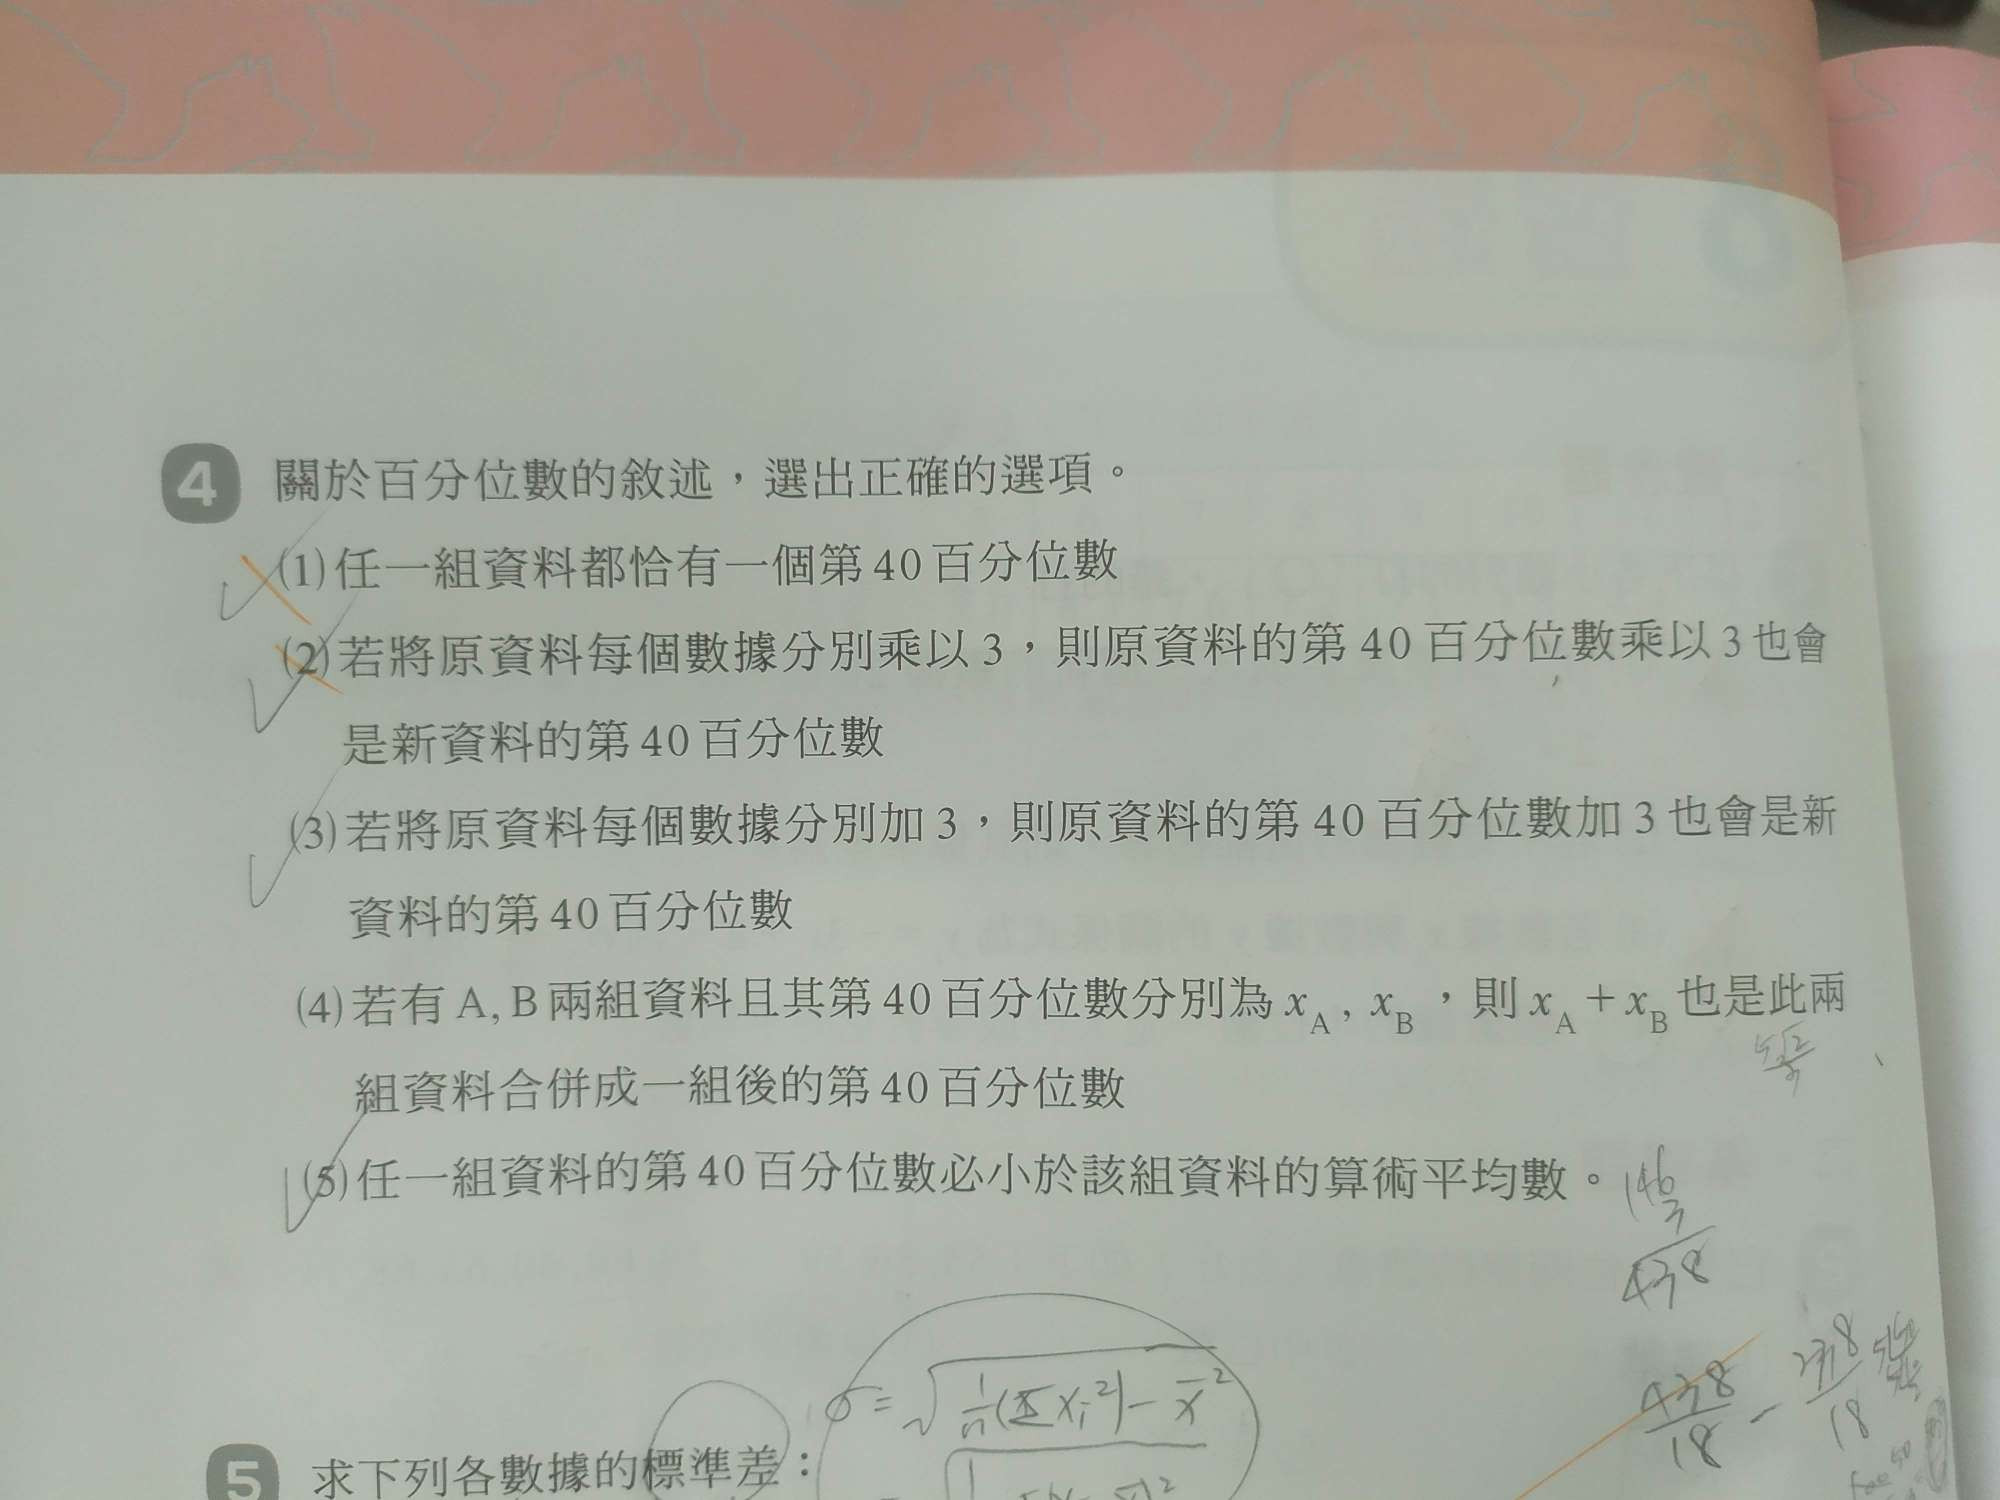 4 關於百分位數的敘述，選出正確的選項。
(1)任一組資料都恰有一個第40百分位數
(2)若將原資料每個數據分別乘以3，則原資料的第40百分位數乘以3也會
是新資料的第40百分位數
(3)若將原資料每個數據分別加3，則原資料的第40百分位數加3也會是新
資料的第40百分位數
(4)若有A, B兩組資料且其第40百分位數分別為x_A, x_B，則x_A+x_B也是此兩
組資料合併成一組後的第40百分位數
(5)任一組資料的第40百分位數必小於該組資料的算術平均數。
146
3
438
σ=√(1/n(Σxᵢ²)-x̄²)
438/18 -
18
5 求下列各數據的標準差：